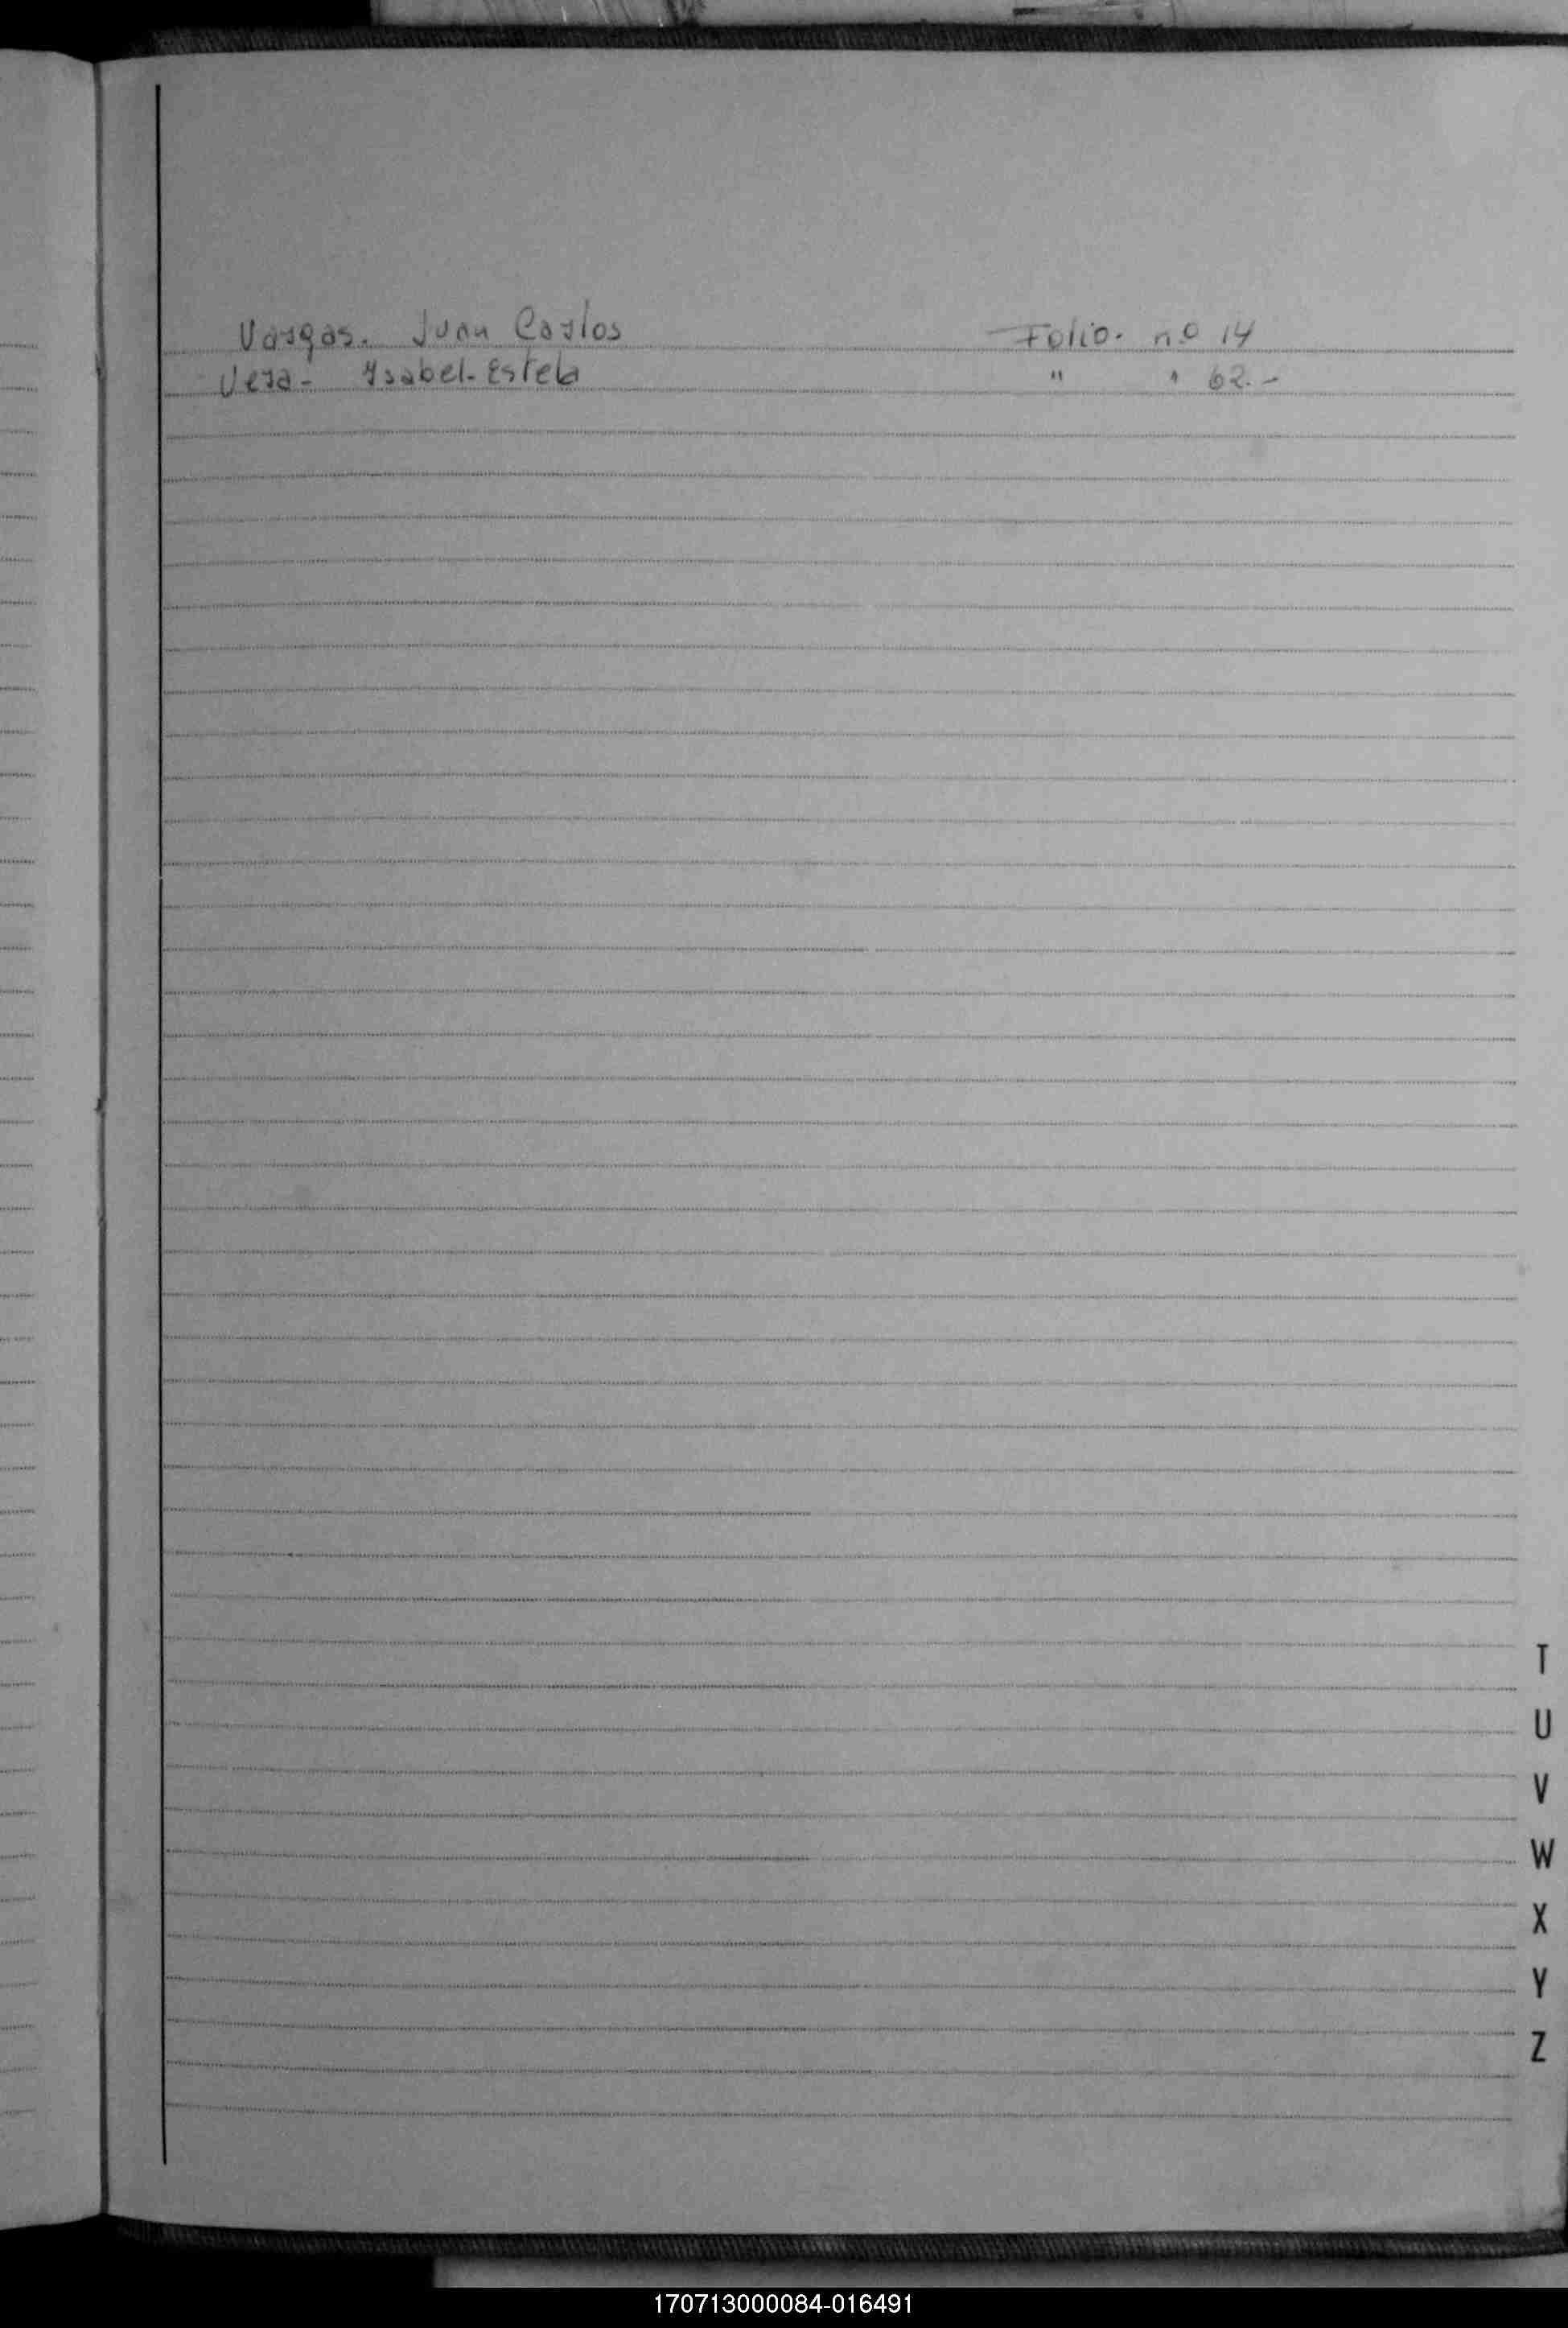 Vargas. Juan Carlos Folio. nº 14
Vera- Ysabel-Estela " " 62.-
T
U
V
W
X
Y
Z
170713000084-016491